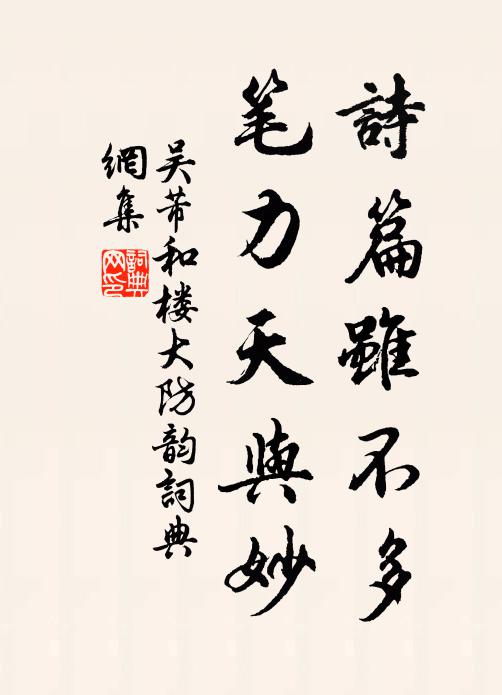 詩篇雖不多
笔力天與妙
吴芾和楼大防韵詞典
網集
詞典網印